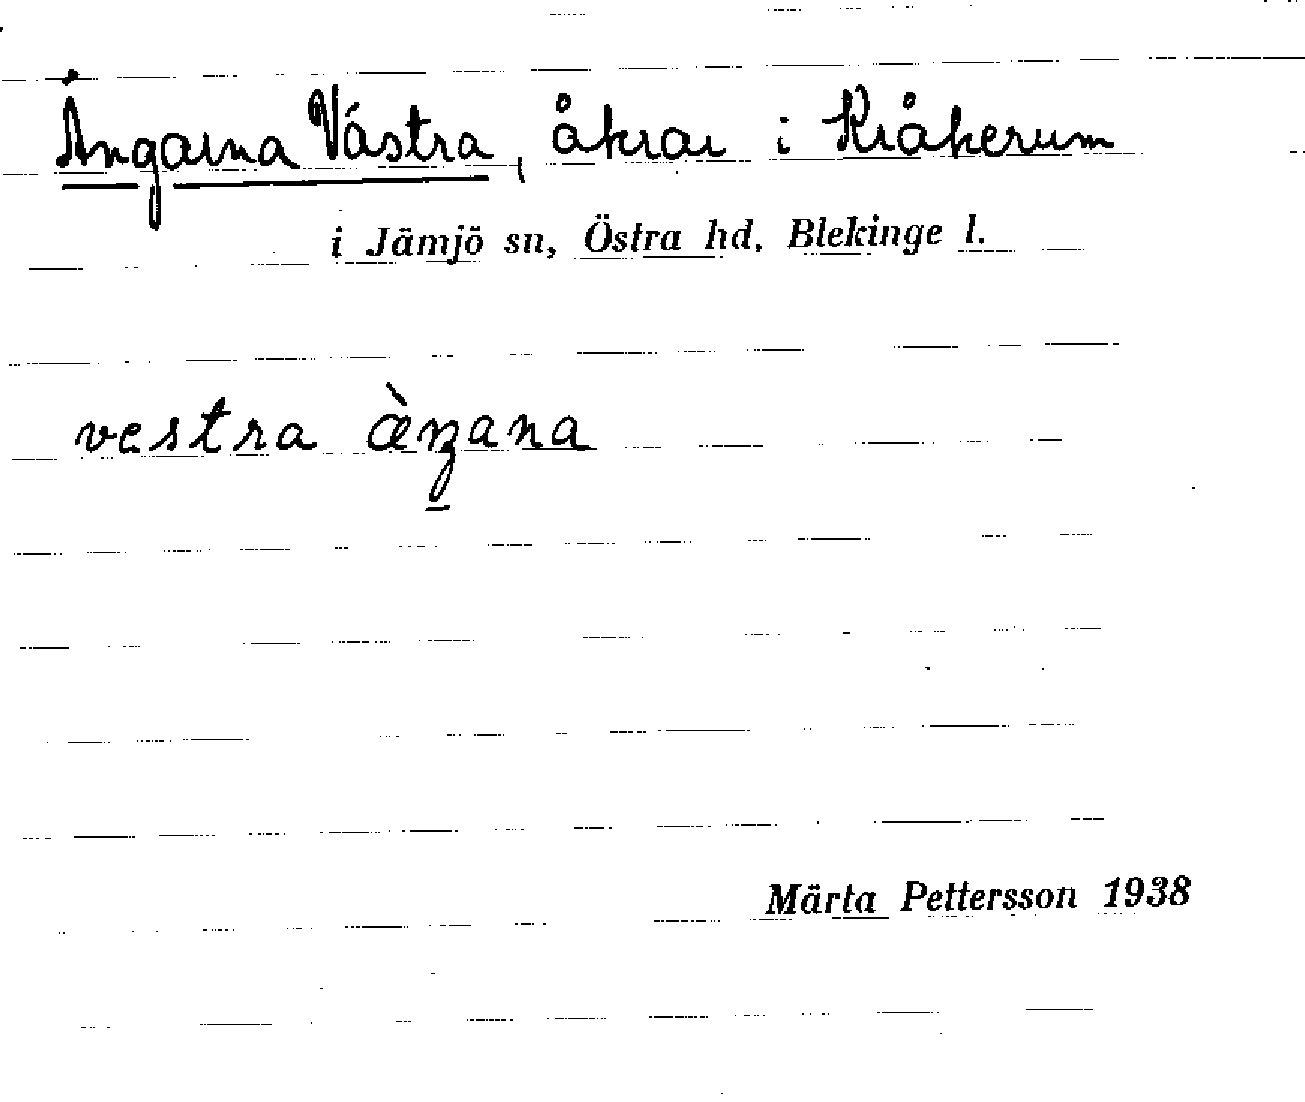 Ängarna Västra, åkrar i Kråkerum
i Jämjö sn, Östra hd, Blekinge l.
vestra æ̀ŋana
Märta Pettersson 1938